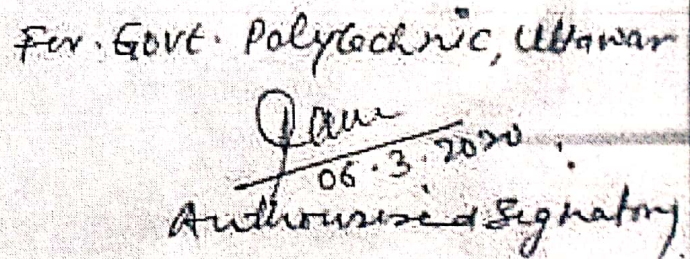 For. Govt. Polytechnic, Uttawar
06.3.2020
Authourised Signatory